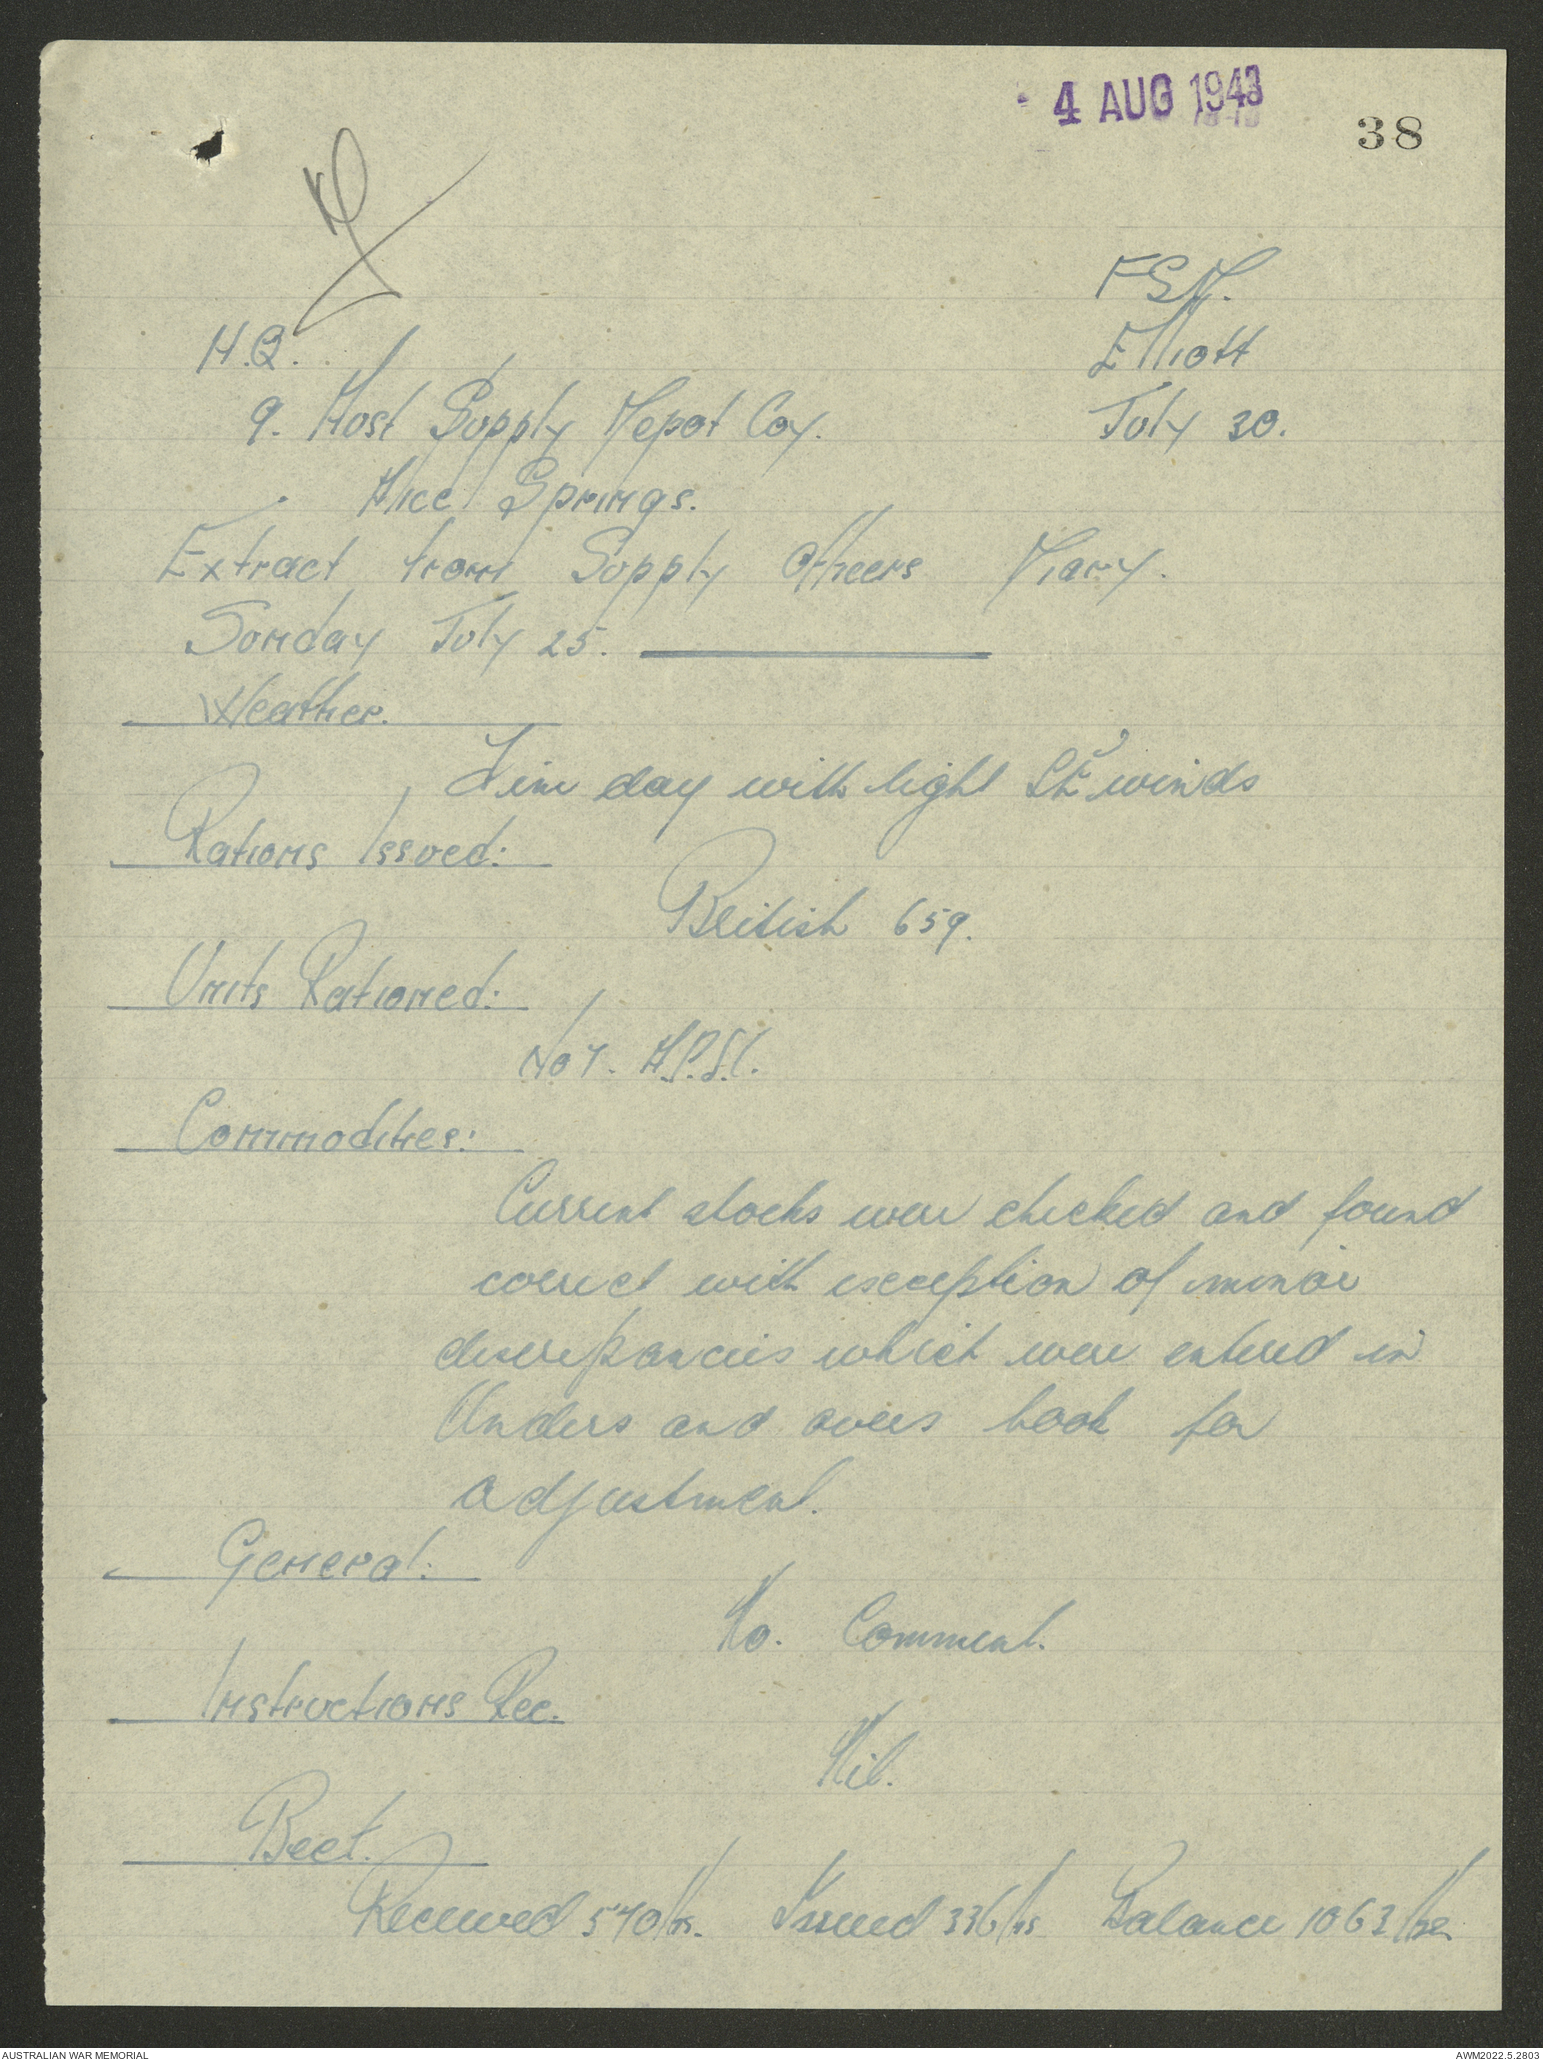 4 AUG 1943
38
F.S.D.
H.Q.
Elliott
9. Aust Supply Depot Coy.
July 30.
Alice Springs.
Extract from Supply Officers Diary.
Sunday July 25.
Weather.
Fine day with light SE winds
Rations Issued:
British 659.
Units Rationed:
No 7. A.P.S.C.
Commodities:
Current stocks were checked and found
correct with exception of minor
discrepancies which were entered in
Unders and overs book for
adjustment.
General:
No. Comment.
Instructions Rec.
Nil.
Beef.
Received 540 lbs. Issued 336 lbs Balance 1063 lbs
AUSTRALIAN WAR MEMORIAL
AWM2022.5.2803